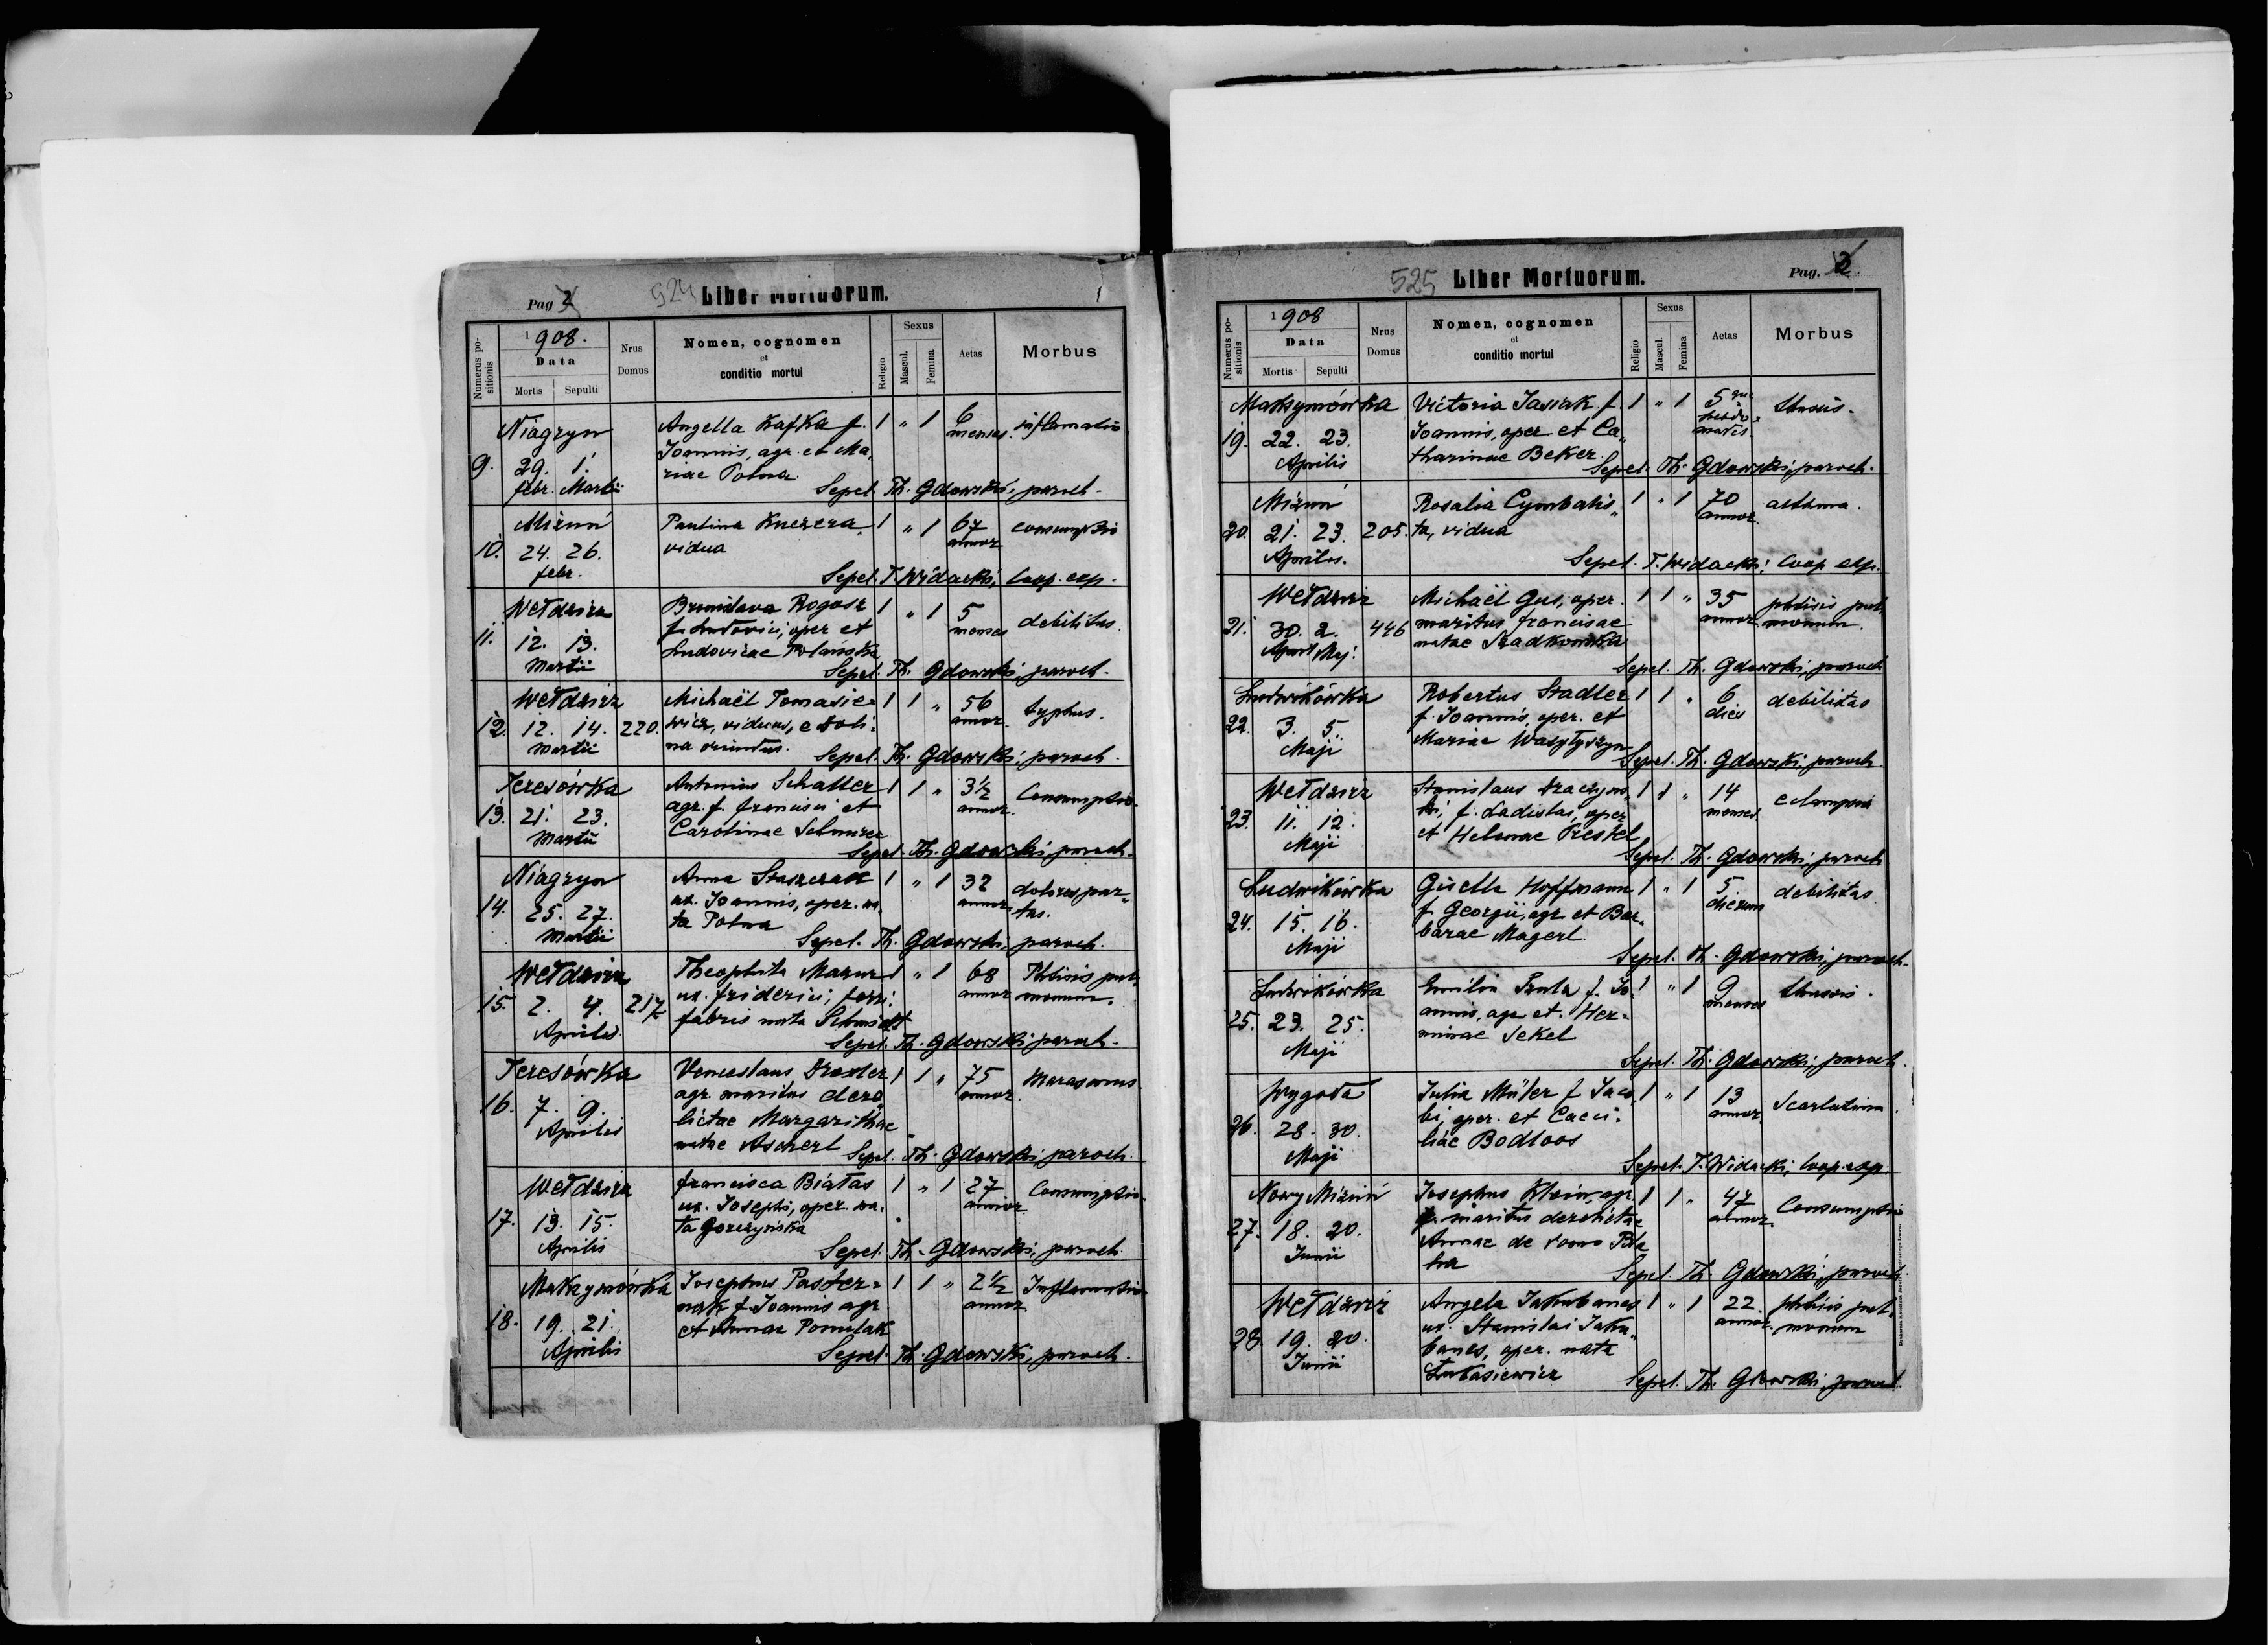 Pag 2
924
Liber Mortuorum.
Numerus positionis
1908.
Data
Mortis
Sepulti
Nrus Domus
Nomen, cognomen
et
conditio mortui
Religio
Sexus
Mascul.
Femina
Aetas
Morbus
Niagryn
9. 29. 1.
febr. Martii
Angella Kafka f. 1 " 1 6 inflamatio
Joannis, agr. et Ma, menses.
riae Polwa
Sepel. Th. Gdowski, paroch.
Mizuń
10. 24. 26.
febr.
Paulina Kuczera, 1 " 1 67 consumptio
vidua annor
Sepel. T. Widacki, Coop. exp.
Wełdzirz
11. 12. 13.
Martii
Bronislava Rogosz 1 " 1 5 debilitas.
f. Ludovici, oper et menses
Ludovicae Polańska
Sepel. Th. Gdowski, paroch.
Wełdzirz
12. 12. 14. 220.
Martii
Michaël Tomasie= 1 1 " 56 typhus.
wicz, viduus, e Doli= annor.
na oriundus.
Sepel. Th. Gdowski, paroch.
Teresówka
13. 21. 23.
Martii
Antonius Schaller 1 1 " 3½ Consumptio
agr. f. Francisci et annor.
Carolinae
Sepel. Th. Gdowski, paroch.
Niagryn
14. 25. 27.
Martii
Anna Staszczak 1 " 1 32 dolores par=
ux. Joannis, oper. na, annor. tus.
ta Polwa
Sepel. Th. Gdowski, paroch.
Wełdzirz
15. 2. 4. 217
Aprilis.
Theophila Mazur 1 " 1 68 Phtisis pul,
ux. Friderici, ferri= annor monum.
fabris nata Schmidt
Sepel. Th. Gdowski, paroch.
Teresówka
16. 7. 9.
Aprilis
Venceslaus Drexler 1 1 " 75 Marasmus
agr. maritus dere, annor.
lictae Margarithae
natae Ascherl
Sepel. Th. Gdowski, paroch.
Wełdzirz
17. 13. 15.
Aprilis
Francisca Białas 1 " 1 27 Consumptio.
ux. Josephi, oper. na. annor
ta Gorczyńska
Sepel. Th. Gdowski, paroch.
Maksymówka
18. 19. 21.
Aprilis
Josephus Paster= 1 1 " 2½ Inflamatio.
nak f. Joannis agr annor
et Annae Pomulak
Sepel. Th. Gdowski, paroch.
525
Liber Mortuorum.
Pag. 3
Numerus positionis
1908
Data
Mortis
Sepulti
Nrus Domus
Nomen, cognomen
et
conditio mortui
Religio
Sexus
Mascul.
Femina
Aetas
Morbus
Maksymówka
19. 22. 23.
Aprilis
Victoria Jasiak f. 1 " 1 5
Joannis, oper et Ca,
tharinae Beker.
Sepel. Th. Gdowski, paroch.
Mizuń
20. 21. 23. 205.
Aprilis.
Rosalia Cymbalis, 1 " 1 70 asthma.
ta, vidua annor.
Sepel. T. Widacki, Coop exp.
Wełdzirz
21. 30. 2. 446
April Maj.
Michaël Gus, oper. 1 1 " 35 phtisis pul,
maritus Franciscae annor. monum.
natae Szadkowska
Sepel. Th. Gdowski, paroch
Ludwikówka
22. 3. 5.
Maji
Robertus Stadler 1 1 " 6 debilitas
f. Joannis, oper. et dies
Mariae Wasyłyszyn
Sepel. Th. Gdowski, paroch.
Wełdzirz
23. 11. 12.
Maji
Stanislaus 1 1 " 14 eclampsia
ki, f. Ladislai, oper menses
et Helenae Prestel
Sepel. Th. Gdowski, paroch
Ludwikówka
24. 15. 16.
Maji
Gisella Hoffmann 1 " 1 5 debilitas
f. Georgii, agr et Bar, dierum
barae Magerl.
Sepel. Th. Gdowski, paroch.
Ludwikówka
25. 23. 25.
Maji
Emilia f. Jo= 1 " 1 9
annis, agr et. Her= menses
minae Sekel
Sepel. Th. Gdowski, paroch.
Wygoda
26. 28. 30.
Maji
Julia Müler f Jaco, 1 " 1 13 Scarlatina.
bi, oper. et Caeci= annor
liae Bodloos
Sepel. T. Widacki, Coop. exp.
Nowy Mizuń
27. 18. 20.
Junii
Josephus Klein, agr 1 1 " 47 Consumptio
maritus derelictae annor.
Annae de domo
Sepel. Th. Gdowski, paroch.
Wełdzirz
28. 19. 20.
Junii
Angela Jakubanes 1 " 1 22. phtisis pul,
ux. Stanislai Jaku, annor. monum
banes, oper. nata
Łukasiewicz
Sepel. Th. Gdowski, paroch.